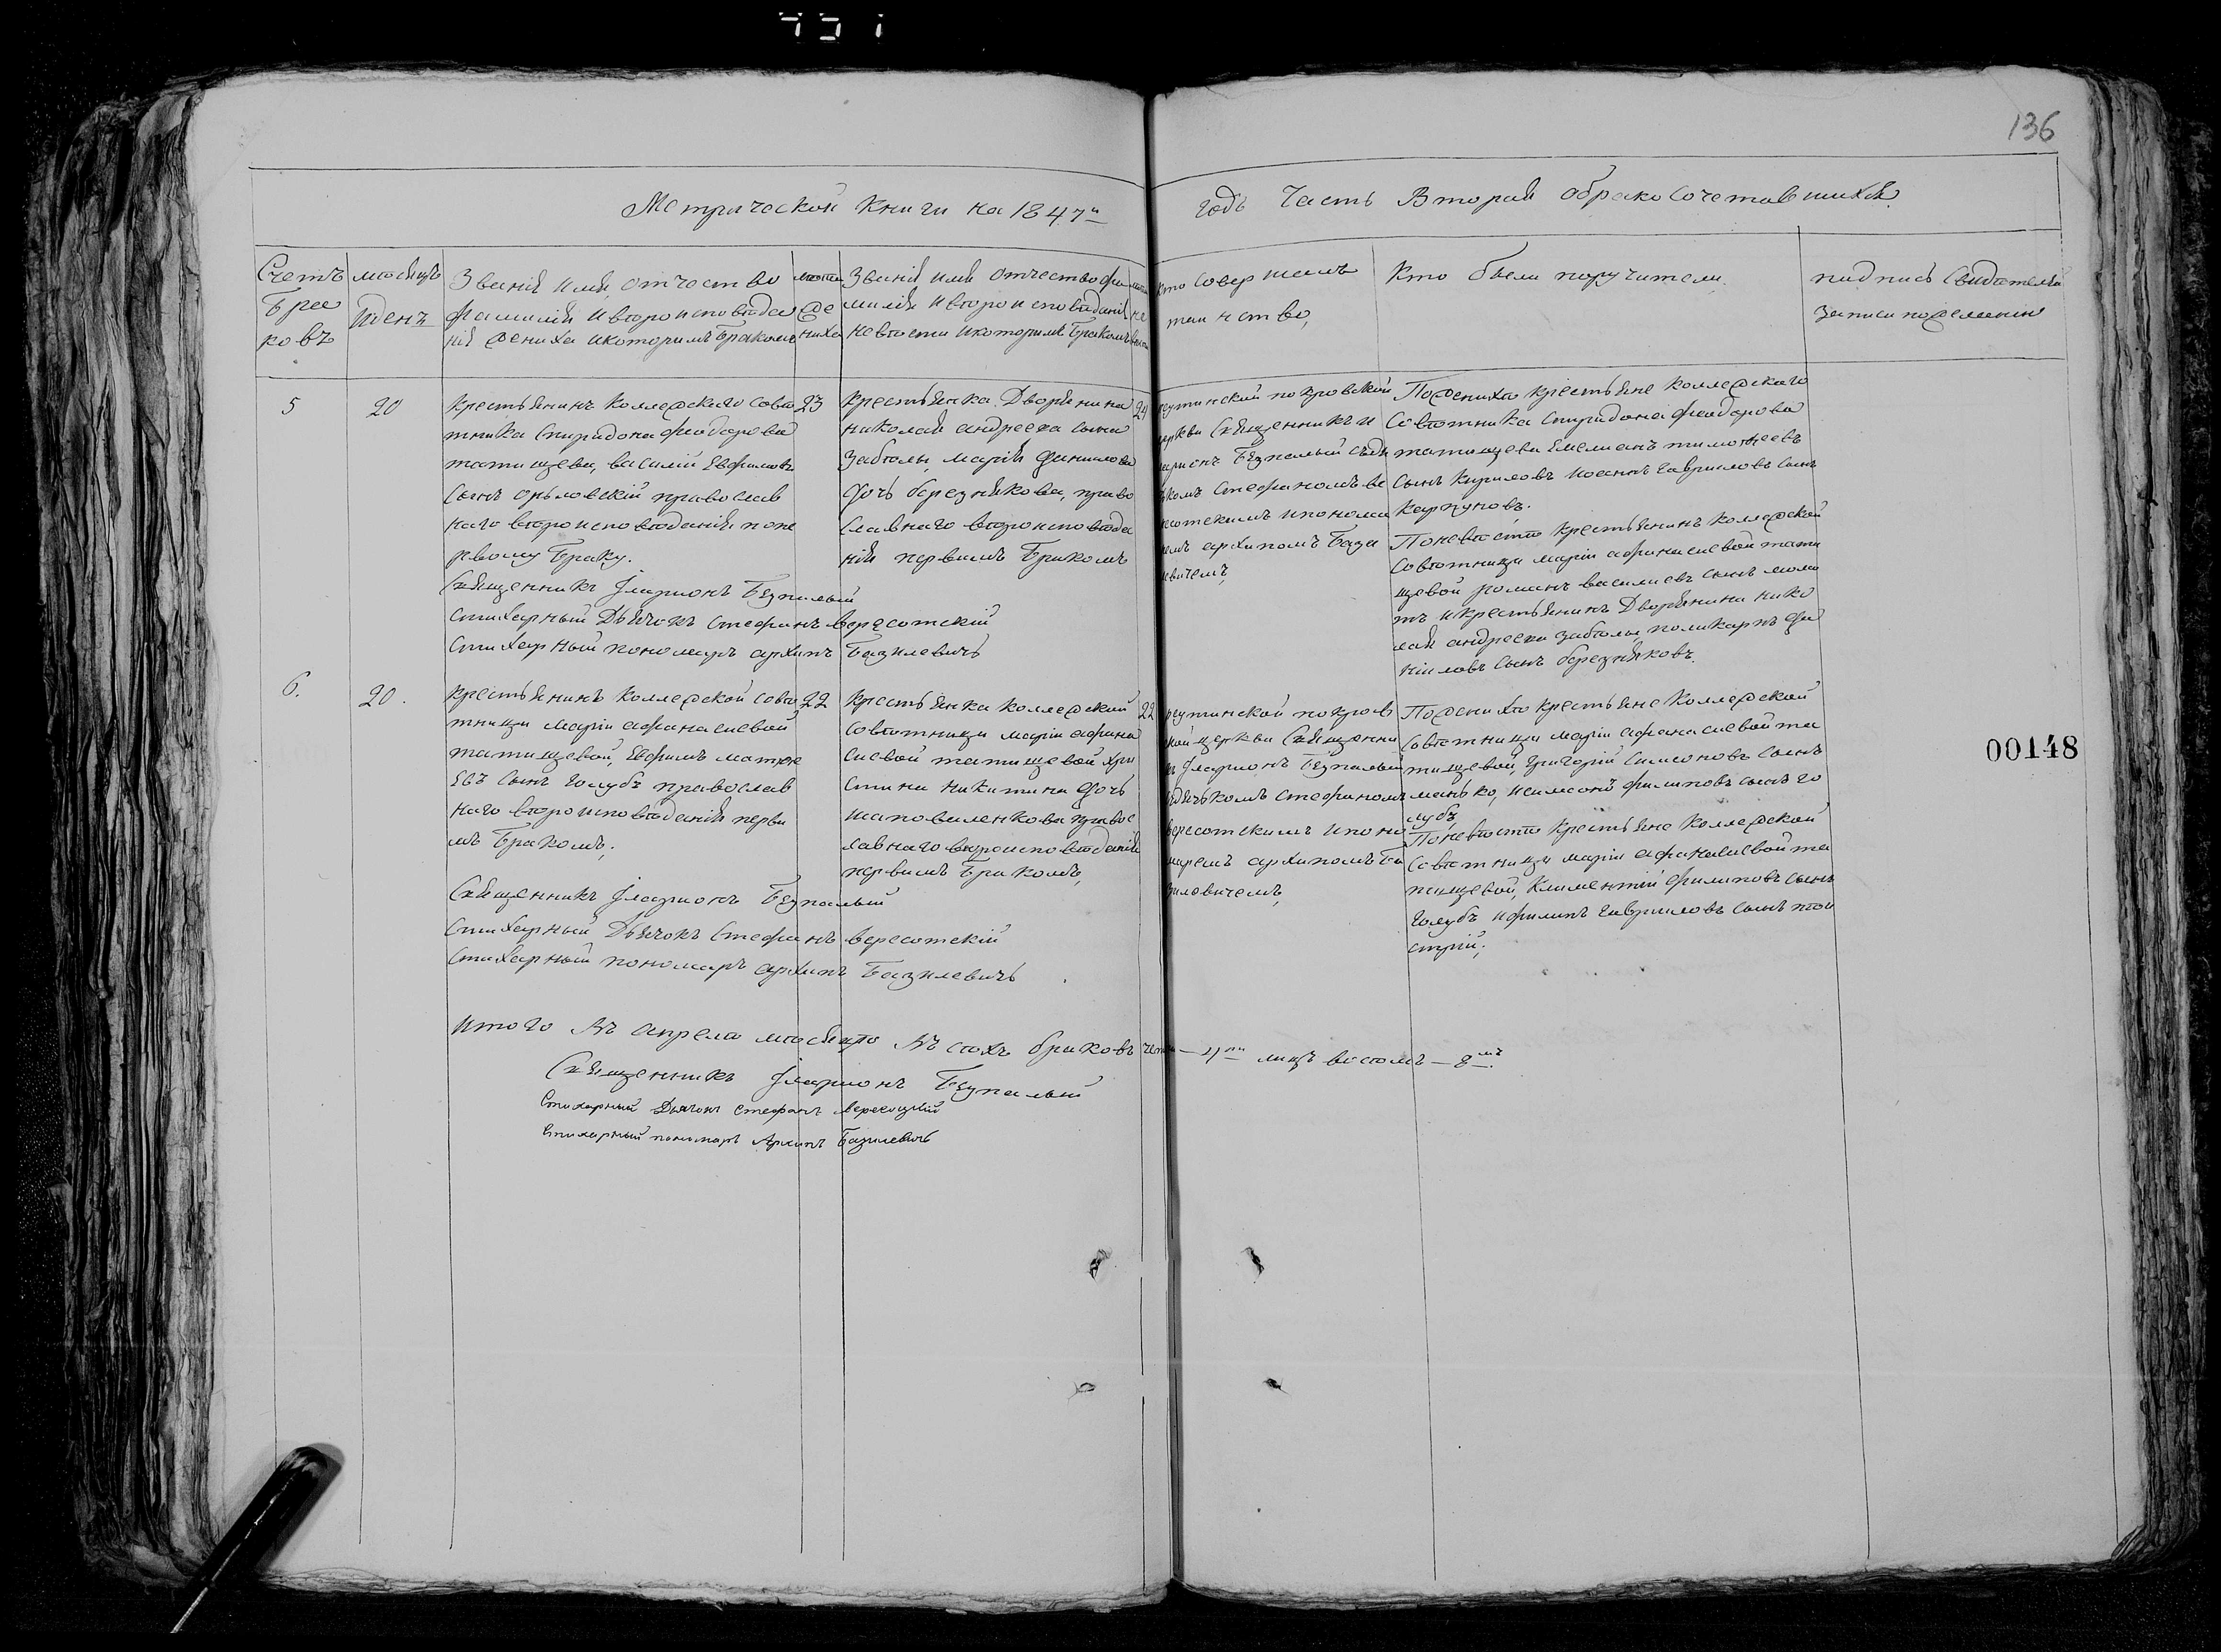 136
Метрической Книги на 1847й годъ Часть Вторая обракосочетавшихся
Счетъ
брa
ковъ
месяцъ
иденъ
Званія имя, отчество
фамилія ивероисповеда
нія жениха икоторимъ бракомъ
лета
же
ниха
Званія имя отчество фа
милія ивероисповеданія
невести икоторимъ бракомъ
Кто совершалъ
таинство,
Кто были поручители
подпись свидетелей
записи пожеланию
5
20
Крестьянинъ Коллежскаго сове
тника Спиридона Феодорова
татищева, василій Евфимовъ
сынъ православ
наго вероисповеданія попе
рвому браку.
23
Крестьянка Дворянина
николая андреева сына
Забелы, марія данилова
дочь березнякова, право
славнаго вероисповеда
нія первимъ бракомъ
21
реутинской покровской
церкви Священникъ И
ларионъ Безпалый сдья
чкомъ Стефаномъ ве
ресотскимъ ипонома
ремъ архипомъ Бази
левичемъ,
Пожениху Крестьяне коллежскаго
Советника Спиридона феодорова
татищева Емелианъ тимофеевъ
сынъ Кириловъ иоаннъ Гавриловъ сынъ
Карпуновъ.
Поневесте Крестьянинъ коллежской
советници маріи афанасиевой тати
щевой романъ василиевъ сынъ
икрестьянинъ Дворянина нико
лая андреева забелы поликарпъ да
ніиловъ сынъ березняковъ.
Священникъ Іларионъ Безпалый
Стихарный Дьячокъ Стефанъ вересотскій
Стихарный пономаръ архипъ Базилевичъ
6.
20.
Крестьянинъ Коллежской сове
тници маріи афанасиевой
татищевой, Евфимъ матфе
евъ сынъ Голубъ православ
наго вероисповеданія перви
мъ бракомъ;
22
Крестьянка коллежской
советници маріи афана
сиевой татищевой хри
стина никитина дочь
шаповаленкова правос
лавнаго вероисповеданія
первимъ бракомъ,
22
реутинской покров
ской церкви Священни
къ Іларионъ Безпалый
сдьячкомъ Стефаномъ
вересотскимъ ипоно
маремъ архипомъ Ба
зилевичемъ,
Пожениху крестьяне Коллежской
Советници маріи афанасиевой та
тищевой, Григорій Симеоновъ сынъ
манько, исимеонъ филиповъ сынъ го
лубъ,
Поневесте Крестьяне Коллежской
Советници маріи афанасиевой та
тищевой, Климентій филиповъ сынъ
Голубъ ифилипъ Гавриловъ сынъ
Священникъ Іларионъ Безпалый
Стихарный Дьячокъ Стефанъ вересотскій
Стихарный пономаръ архипъ Базилевичъ
00148
итого Въ апреле месяце Всехъ браковъ четыри — 4ри лицъ восемъ — 8мъ.
Священникъ Іларионъ Безпалый
Стихарный Дьячокъ Стефанъ Вересоцкій
Стихарный пономаръ Архипъ Базилевичъ